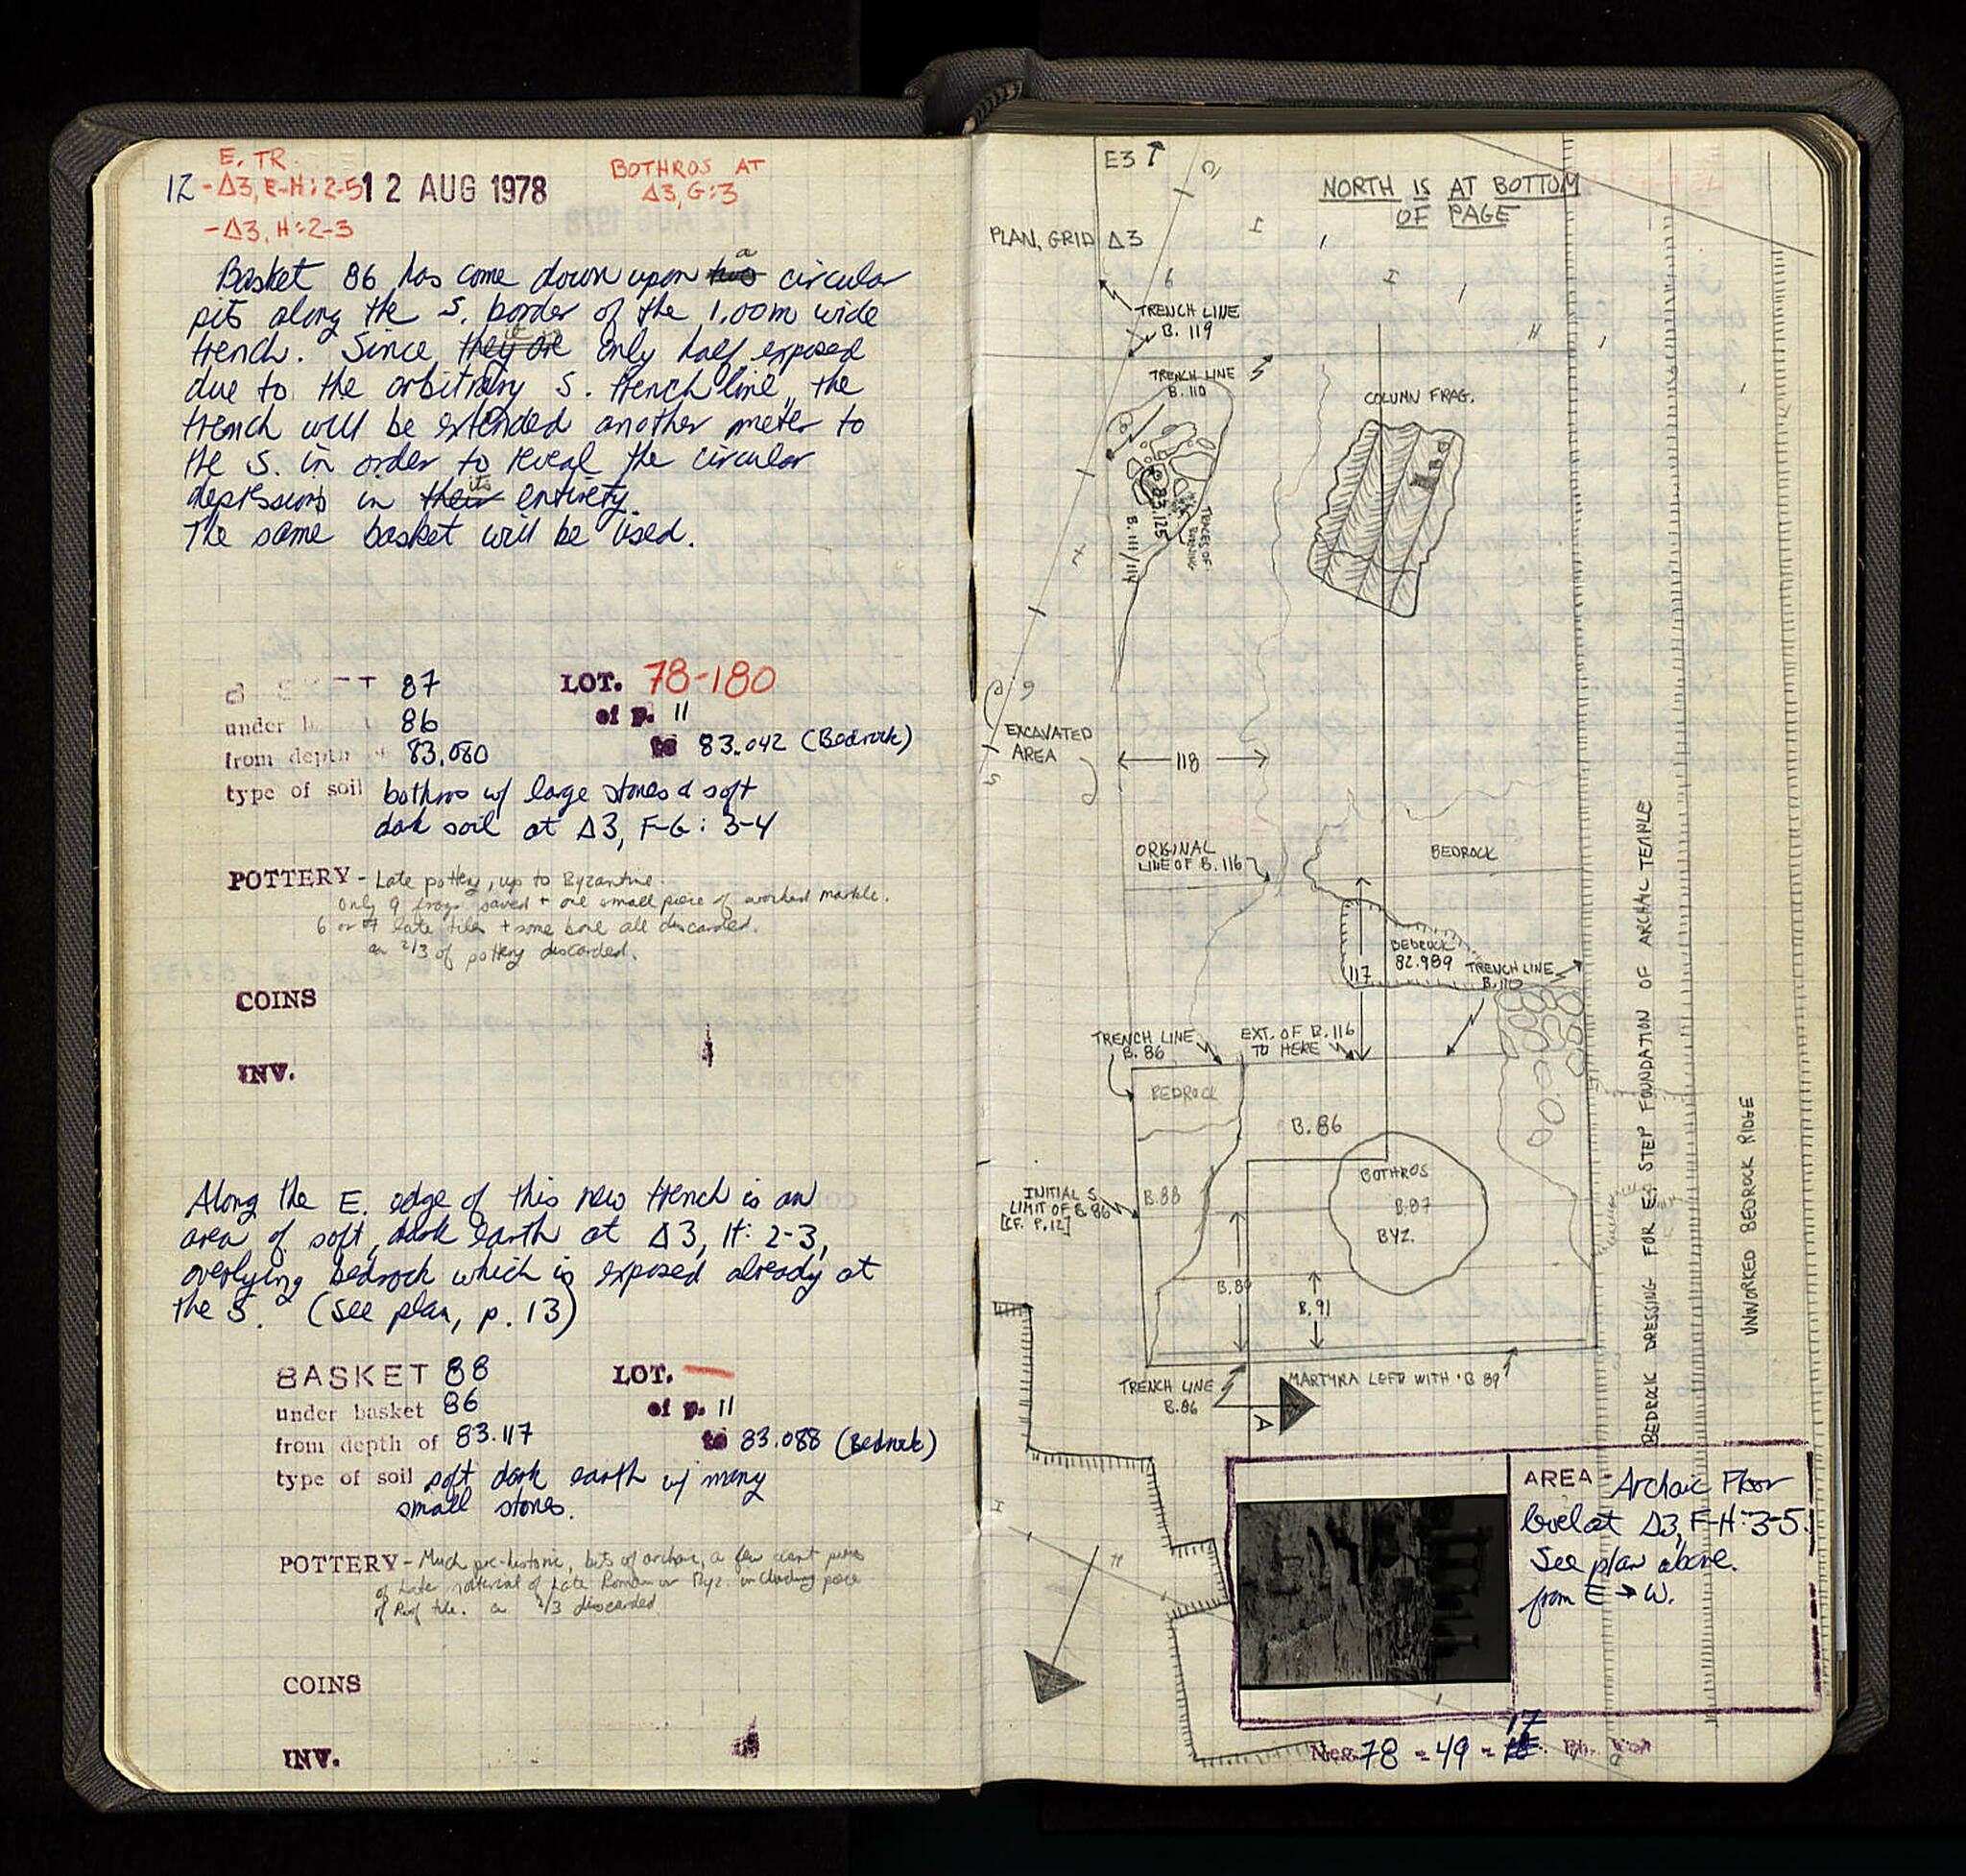 E. TR.
12 - Δ3, E-H: 2-5 12 AUG 1978
BOTHROS AT
Δ3, G:3
- Δ3, H: 2-3
Basket 86 has come down upon two a circular
pits along the S. border of the 1.00m wide
trench. Since they are it is only half exposed
due to the arbitrary S. trench line, the
trench will be extended another meter to
the S. in order to reveal the circular
depressions in their its entirety.
The same basket will be used.
87 LOT. 78-180
under 86 of p. 11
from depth of 83.080 to 83.042 (Bedrock)
type of soil bothros w/ large stones & soft
dark soil at Δ3, F-G: 3-4
POTTERY - Late pottery, up to Byzantine.
Only 9 frags saved + one small piece of worked marble.
6 or 7 late tiles + some bone all discarded.
ca 2/3 of pottery discarded.
COINS
INV.
Along the E. edge of this new trench is an
area of soft, dark earth at Δ3, H: 2-3,
overlying bedrock which is exposed already at
the S. (see plan, p. 13)
BASKET 88 LOT. —
under basket 86 of p. 11
from depth of 83.117 to 83.088 (Bedrock)
type of soil soft dark earth w/ many
small stones.
POTTERY - Much pre-historic, bits of archaic, a few scant pieces
of Late material of Late Roman or Byz. including piece
of Roof tile. ca 2/3 discarded.
COINS
INV.
E3
NORTH IS AT BOTTOM
OF PAGE
PLAN, GRID Δ3
TRENCH LINE
B. 119
TRENCH LINE
B. 110
COLUMN FRAG.
83.125
TRACES OF
BURNING
B. 111/114
EXCAVATED
AREA
118
ORIGINAL
LINE OF B. 116
BEDROCK
BEDROCK
82.989
117
TRENCH LINE
B. 110
TRENCH LINE
B. 86
EXT. OF B. 116
TO HERE
BEDROCK
B. 86
BOTHROS
B. 87
BYZ.
B. 88
INITIAL S.
LIMIT OF B. 86
[CF. P. 12]
B. 89
B. 91
TRENCH LINE
B. 86
MARTYRA LEFT WITH B 89
A
BEDROCK DRESSING FOR E. STEP FOUNDATION OF ARCHAIC TEMPLE
UNWORKED BEDROCK RIDGE
AREA - Archaic Floor
level at Δ3, F-H: 3-5.
See plan above.
from E → W.
Neg. 78 - 49 - 17